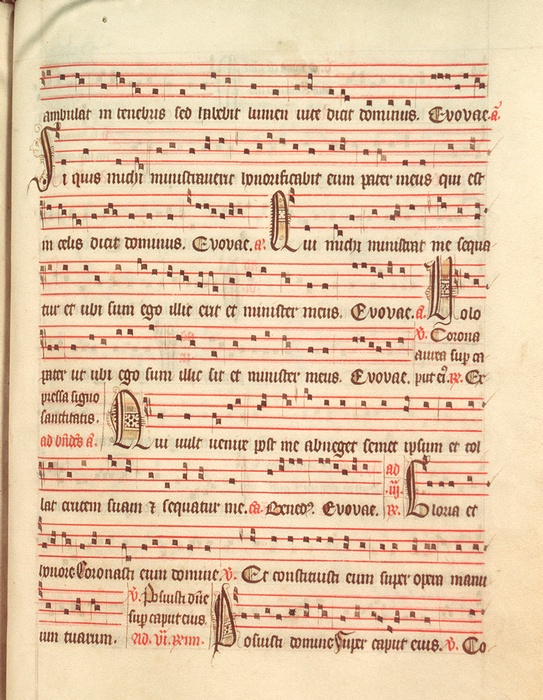 6
ambulat in tenebris sed habebit lumen vite dicit dominus. Evovae. a.
Si quis michi ministraverit honorificabit eum pater meus qui est
in celis dicit dominus. Evovae. a. Qui michi ministrat me sequa
tur et ubi sum ego illic erit et minister meus. Evovae. a. Volo
V. Corona
aurea sup ca
pater ut ubi ego sum illic sit et minister meus. Evovae. put ei. R. Ex
pressa signo
sanctitatis.
Qui vult venire post me abneget semet ipsum et tol
lat crucem suam & sequatur me. Evovae. ad iii. R. Gloria et
honore Coronasti eum domine. V. Et constituisti eum super opera manu
um tuarum.
V. Posuisti dne
sup caput eius.
ad. vi. Posuisti domine Super caput eius. V. Co